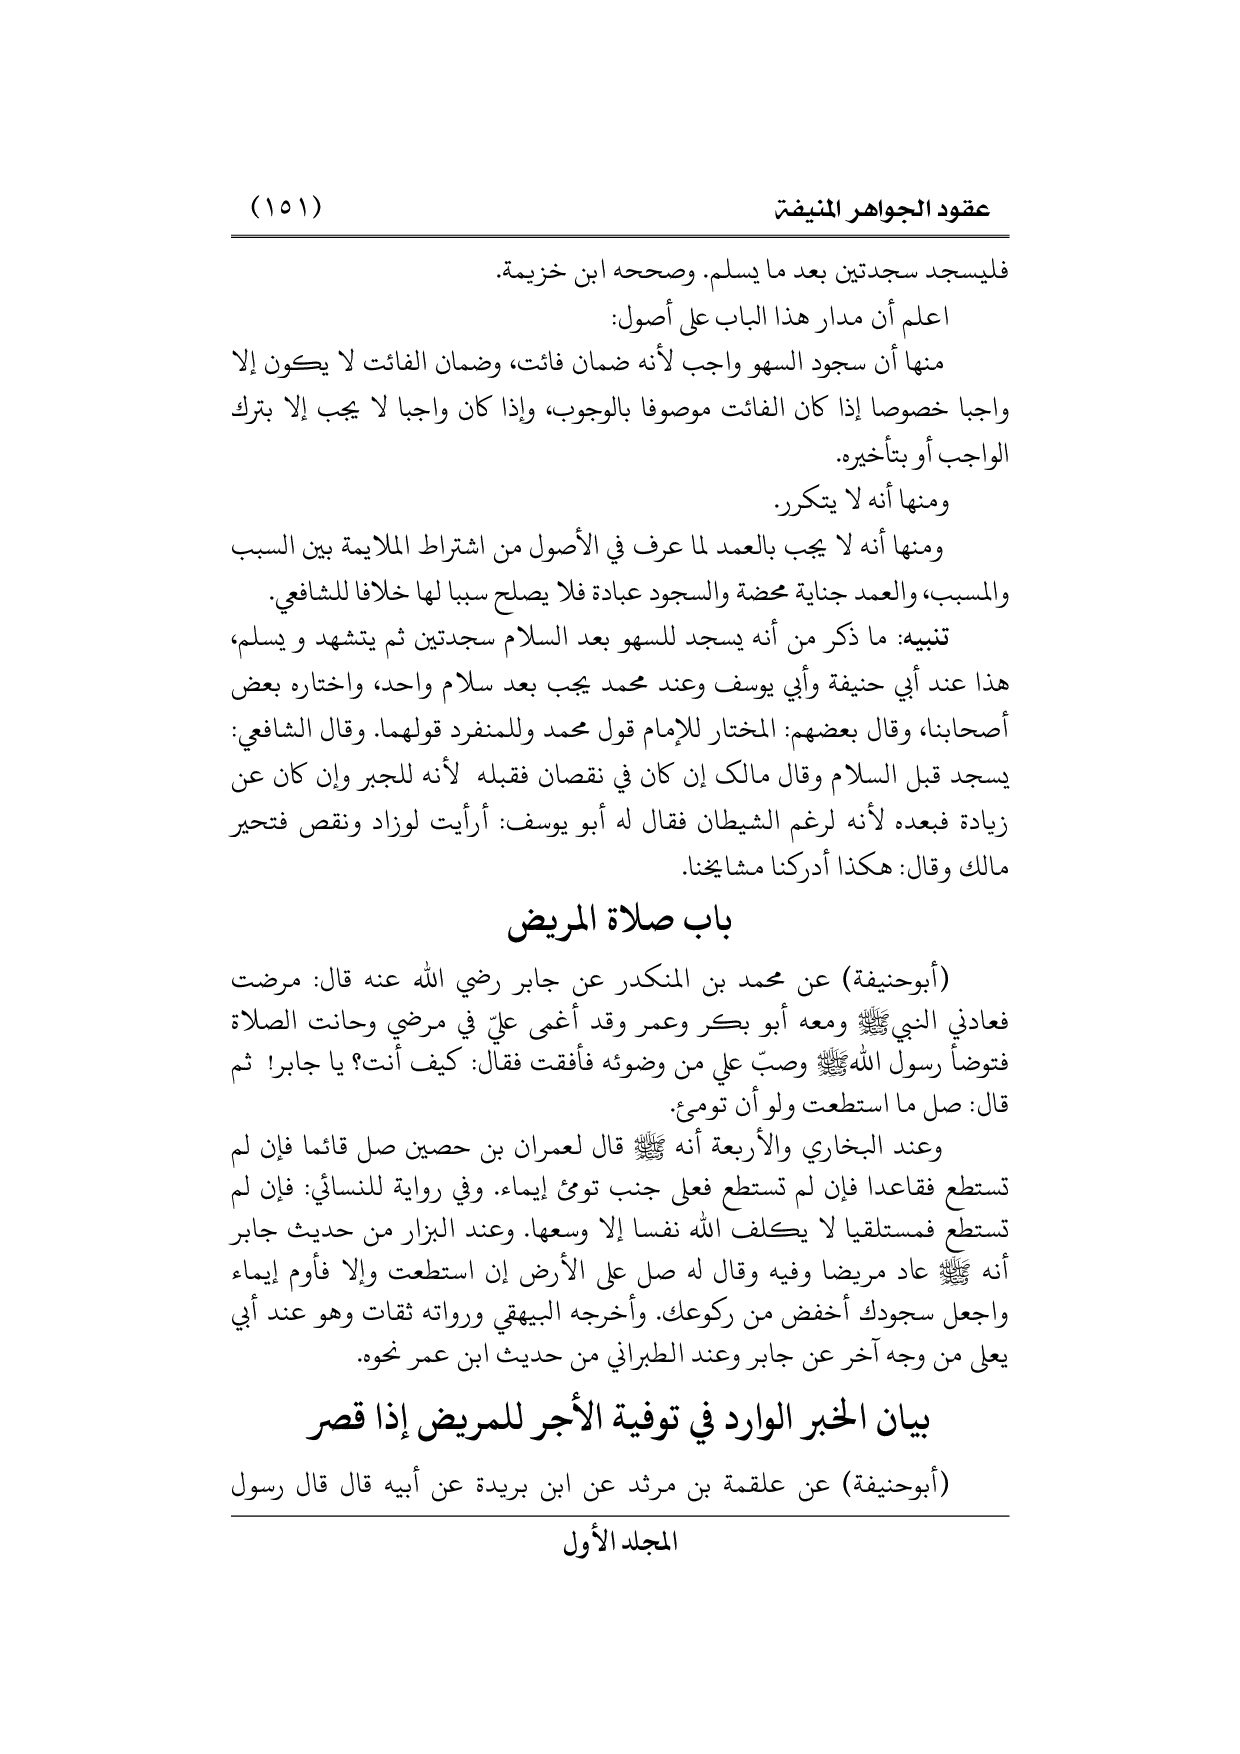 عقود الجواهر المنيفة (١٥١)
فليسجد سجدتين بعد ما يسلم. وصححه ابن خزيمة.
اعلم أن مدار هذا الباب على أصول:
منها أن سجود السهو واجب لأنه ضمان فائت، وضمان الفائت لا يكون إلا
واجبا خصوصا إذا كان الفائت موصوفا بالوجوب، وإذا كان واجبا لا يجب إلا بترك
الواجب أو بتأخيره.
ومنها أنه لا يتكرر.
ومنها أنه لا يجب بالعمد لما عرف في الأصول من اشتراط الملايمة بين السبب
والمسبب، والعمد جناية محضة والسجود عبادة فلا يصلح سببا لها خلافا للشافعي.
تنبيه: ما ذكر من أنه يسجد للسهو بعد السلام سجدتين ثم يتشهد و يسلم،
هذا عند أبي حنيفة وأبي يوسف وعند محمد يجب بعد سلام واحد، واختاره بعض
أصحابنا، وقال بعضهم: المختار للإمام قول محمد وللمنفرد قولهما. وقال الشافعي:
يسجد قبل السلام وقال مالک إن كان في نقصان فقبله لأنه للجبر وإن كان عن
زيادة فبعده لأنه لرغم الشيطان فقال له أبو يوسف: أرأيت لوزاد ونقص فتحير
مالك وقال: هكذا أدركنا مشايخنا.
باب صلاة المريض
(أبوحنيفة) عن محمد بن المنكدر عن جابر رضي الله عنه قال: مرضت
فعادني النبيﷺ ومعه أبو بكر وعمر وقد أغمى عليّ في مرضي وحانت الصلاة
فتوضأ رسول اللهﷺ وصبّ علي من وضوئه فأفقت فقال: كيف أنت؟ يا جابر! ثم
قال: صل ما استطعت ولو أن تومئ.
وعند البخاري والأربعة أنه ﷺ قال لعمران بن حصين صل قائما فإن لم
تستطع فقاعدا فإن لم تستطع فعلى جنب تومئ إيماء. وفي رواية للنسائي: فإن لم
تستطع فمستلقيا لا يكلف الله نفسا إلا وسعها. وعند البزار من حديث جابر
أنه ﷺ عاد مريضا وفيه وقال له صل على الأرض إن استطعت وإلا فأوم إيماء
واجعل سجودك أخفض من ركوعك. وأخرجه البيهقي ورواته ثقات وهو عند أبي
يعلى من وجه آخر عن جابر وعند الطبراني من حديث ابن عمر نحوه.
بيان الخبر الوارد في توفية الأجر للمريض إذا قصر
(أبوحنيفة) عن علقمة بن مرثد عن ابن بريدة عن أبيه قال قال رسول
المجلد الأول